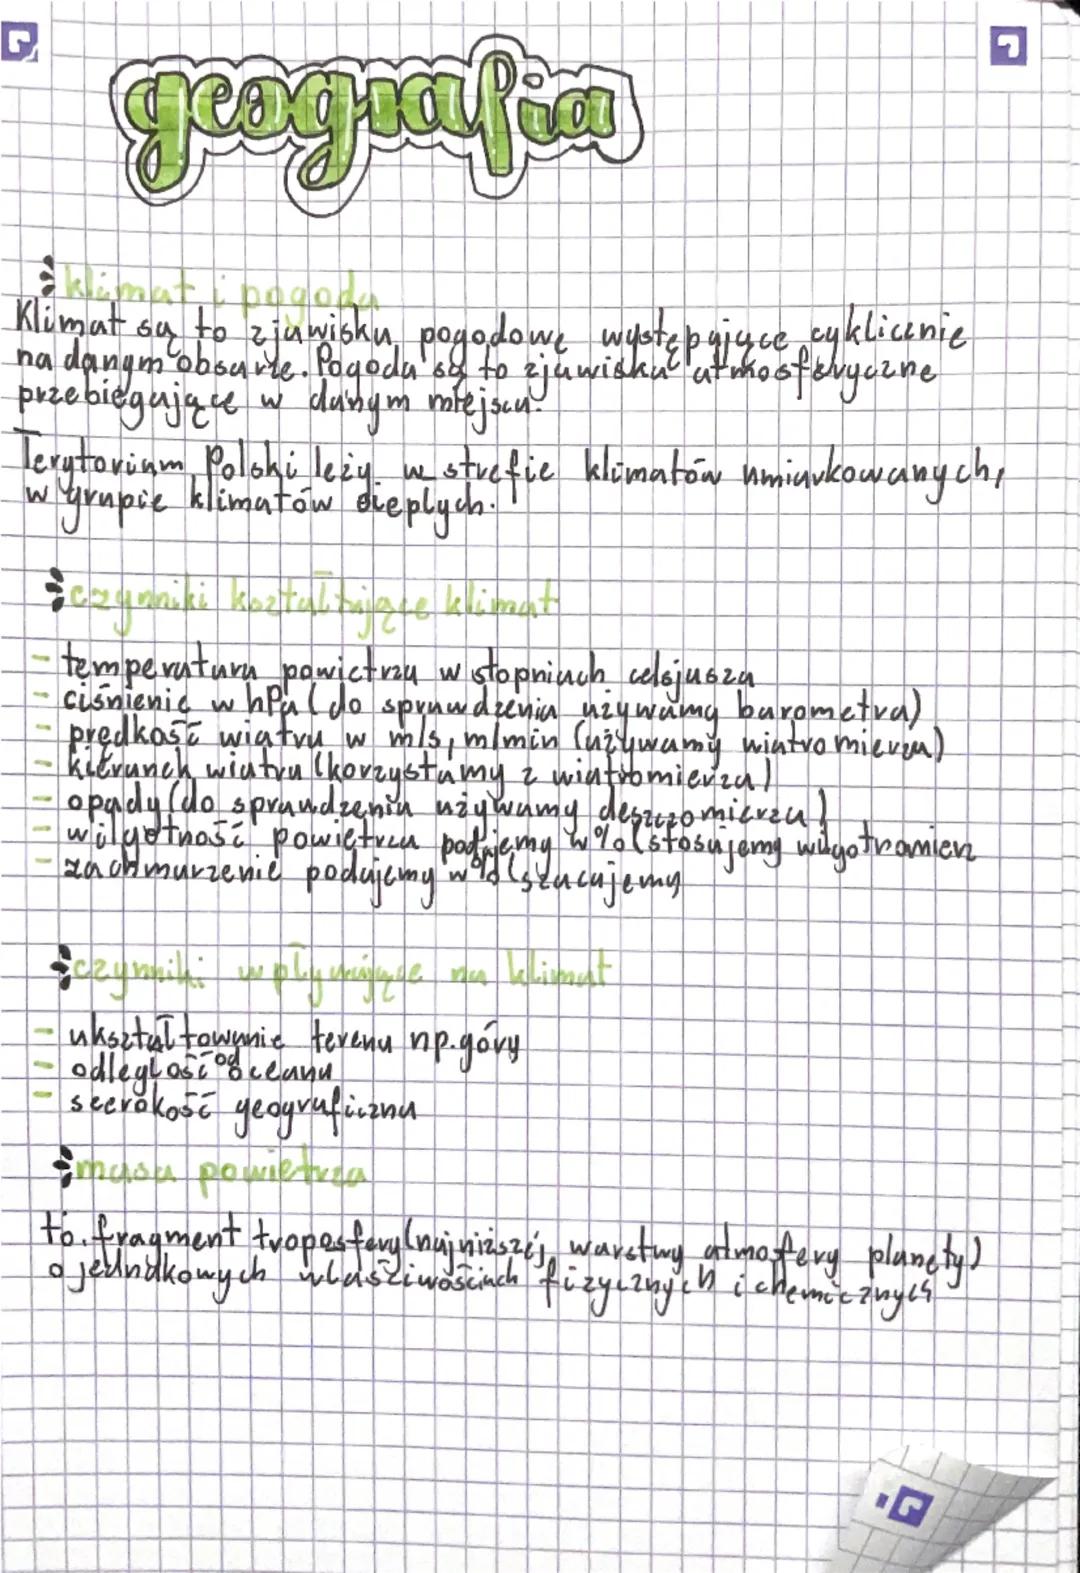 geografia
klimat i pogoda
Klimat są to zjawiska pogodowe występujące cyklicznie
na danym obszarze. Pogoda są to zjawiska atmosferyczne
przebiegające w danym miejscu.
Terytorium Polski leży w strefie klimatów umiarkowanych,
w grupie klimatów ciepłych.
czynniki kształtujące klimat
- temperatura powietrza w stopniach celsjusza
- ciśnienie w hPa (do sprawdzenia używamy barometra)
- prędkość wiatru w m/s, m/min (używamy wiatromierza)
- kierunek wiatru (korzystamy z wiatromierza)
- opady (do sprawdzenia używamy deszczomierza)
- wilgotność powietrza podajemy w % (stosujemy wilgotromierz
- zachmurzenie podajemy w % (szacujemy
czynniki wpływające na klimat
- ukształtowanie terenu np. góry
- odległość od oceanu
- szerokość geograficzna
masa powietrza
to. fragment troposfery (najniższej warstwy atmosfery planety)
o jednakowych właściwościach fizycznych i chemicznych